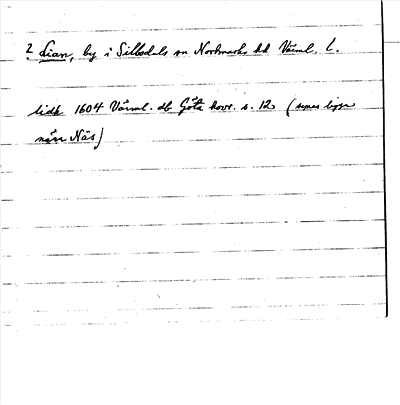 ? Lian, by i Sillbodals sn Nordmarks hd Värml. l.
lidh 1604 Värml. db Göta hovr. s. 12 (synes ligga
nära Näs)